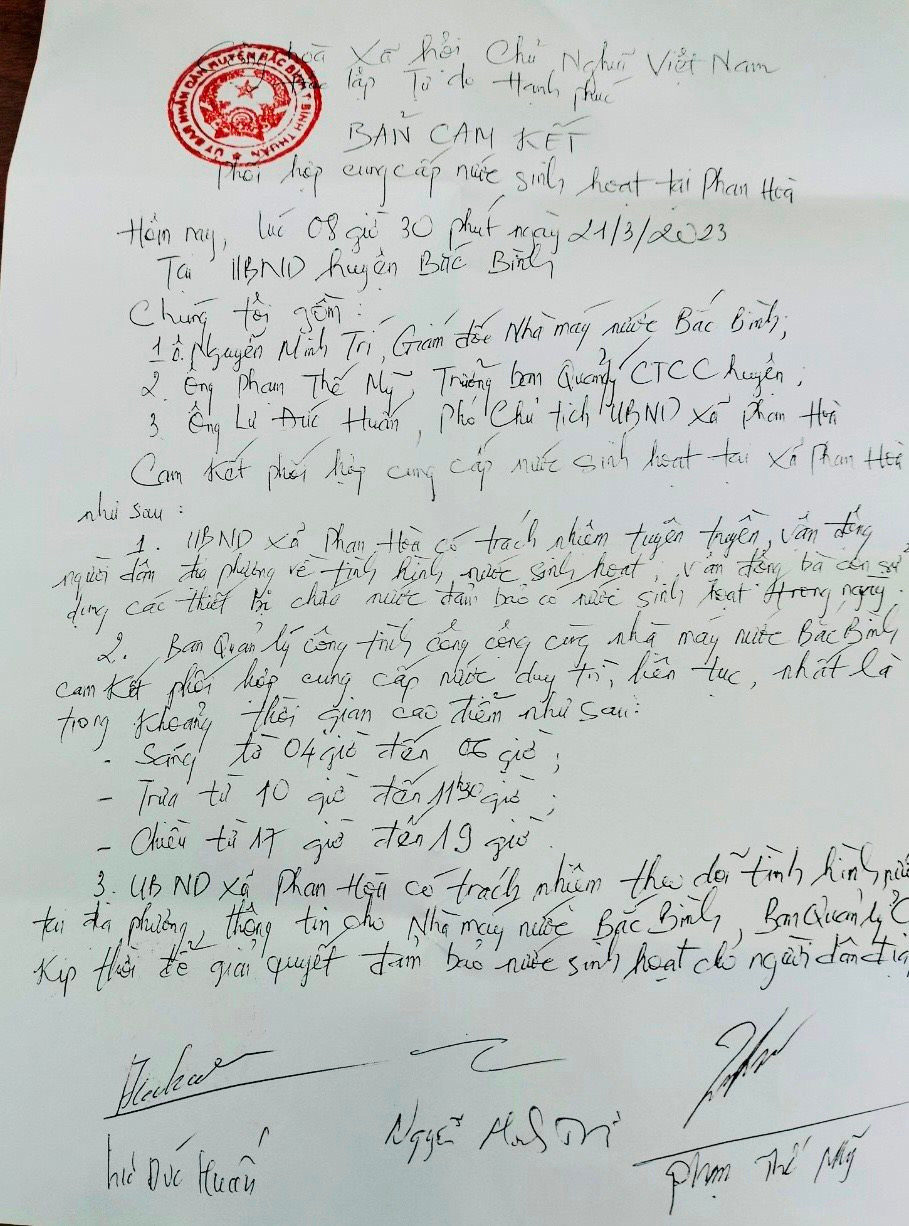 Cộng hoà Xã hội Chủ Nghĩa Việt Nam
lập Tự do Hạnh phúc
ỦY BAN NHÂN DÂN HUYỆN BẮC BÌNH T. BÌNH THUẬN
BẢN CAM KẾT
Phối hợp cung cấp nước sinh hoạt tại Phan Hoà
Hôm nay, lúc 08 giờ 30 phút ngày 21/3/2023
Tại UBND huyện Bắc Bình
Chúng tôi gồm:
1. Ô. Nguyễn Minh Trí, Giám đốc Nhà máy nước Bắc Bình;
2. Ông Phạm Thế Mỹ, Trưởng ban Quản lý CTCC huyện;
3. Ông Lư Đức Huấn, Phó Chủ tịch UBND xã Phan Hoà
Cam kết phối hợp cung cấp nước sinh hoạt tại xã Phan Hoà
như sau:
1. UBND xã Phan Hoà có trách nhiệm tuyên truyền, vận động
người dân địa phương về tình hình nước sinh hoạt; vận động bà con sử
dụng các thiết bị chứa nước đảm bảo có nước sinh hoạt trong ngày.
2. Ban Quản lý công trình công cộng cùng nhà máy nước Bắc Bình
cam kết phối hợp cung cấp nước duy trì, liên tục, nhất là
trong khoảng thời gian cao điểm như sau:
- Sáng từ 04 giờ đến 06 giờ;
- Trưa từ 10 giờ đến 11h30 giờ;
- Chiều từ 17 giờ đến 19 giờ.
3. UBND xã Phan Hoà có trách nhiệm theo dõi tình hình nướ
tại địa phương, thông tin cho Nhà máy nước Bắc Bình, Ban Quản lý C
kịp thời để giải quyết đảm bảo nước sinh hoạt cho người dân địa
Lư Đức Huấn
Nguyễn Minh Trí
Phạm Thế Mỹ